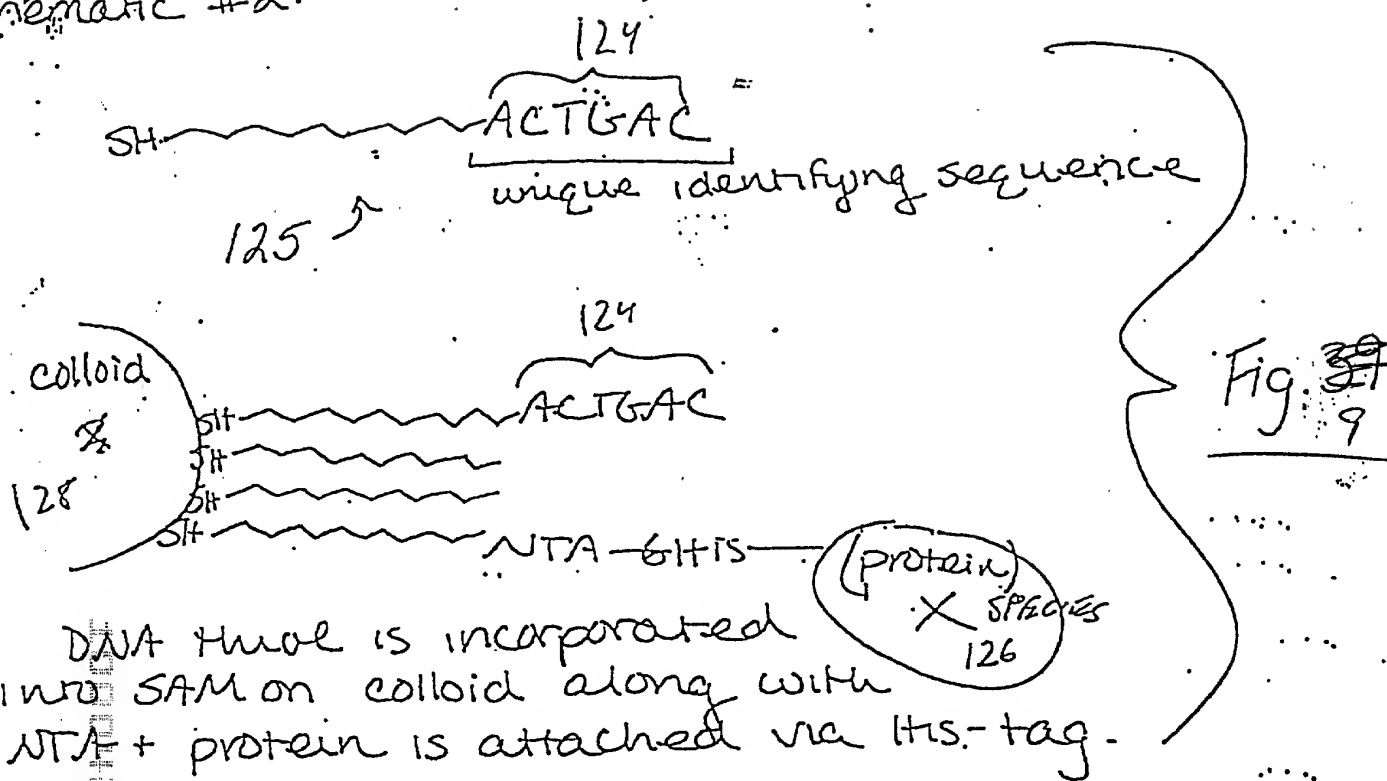 #2.
124
SH ACTGAC
unique identifying sequence
125
124
colloid
128
SH ACTGAC
SH
SH
SH NTA-6His
(protein)
X SPECIES
126
Fig.
9
DNA thiol is incorporated
into SAM on colloid along with
NTA + protein is attached via His-tag.